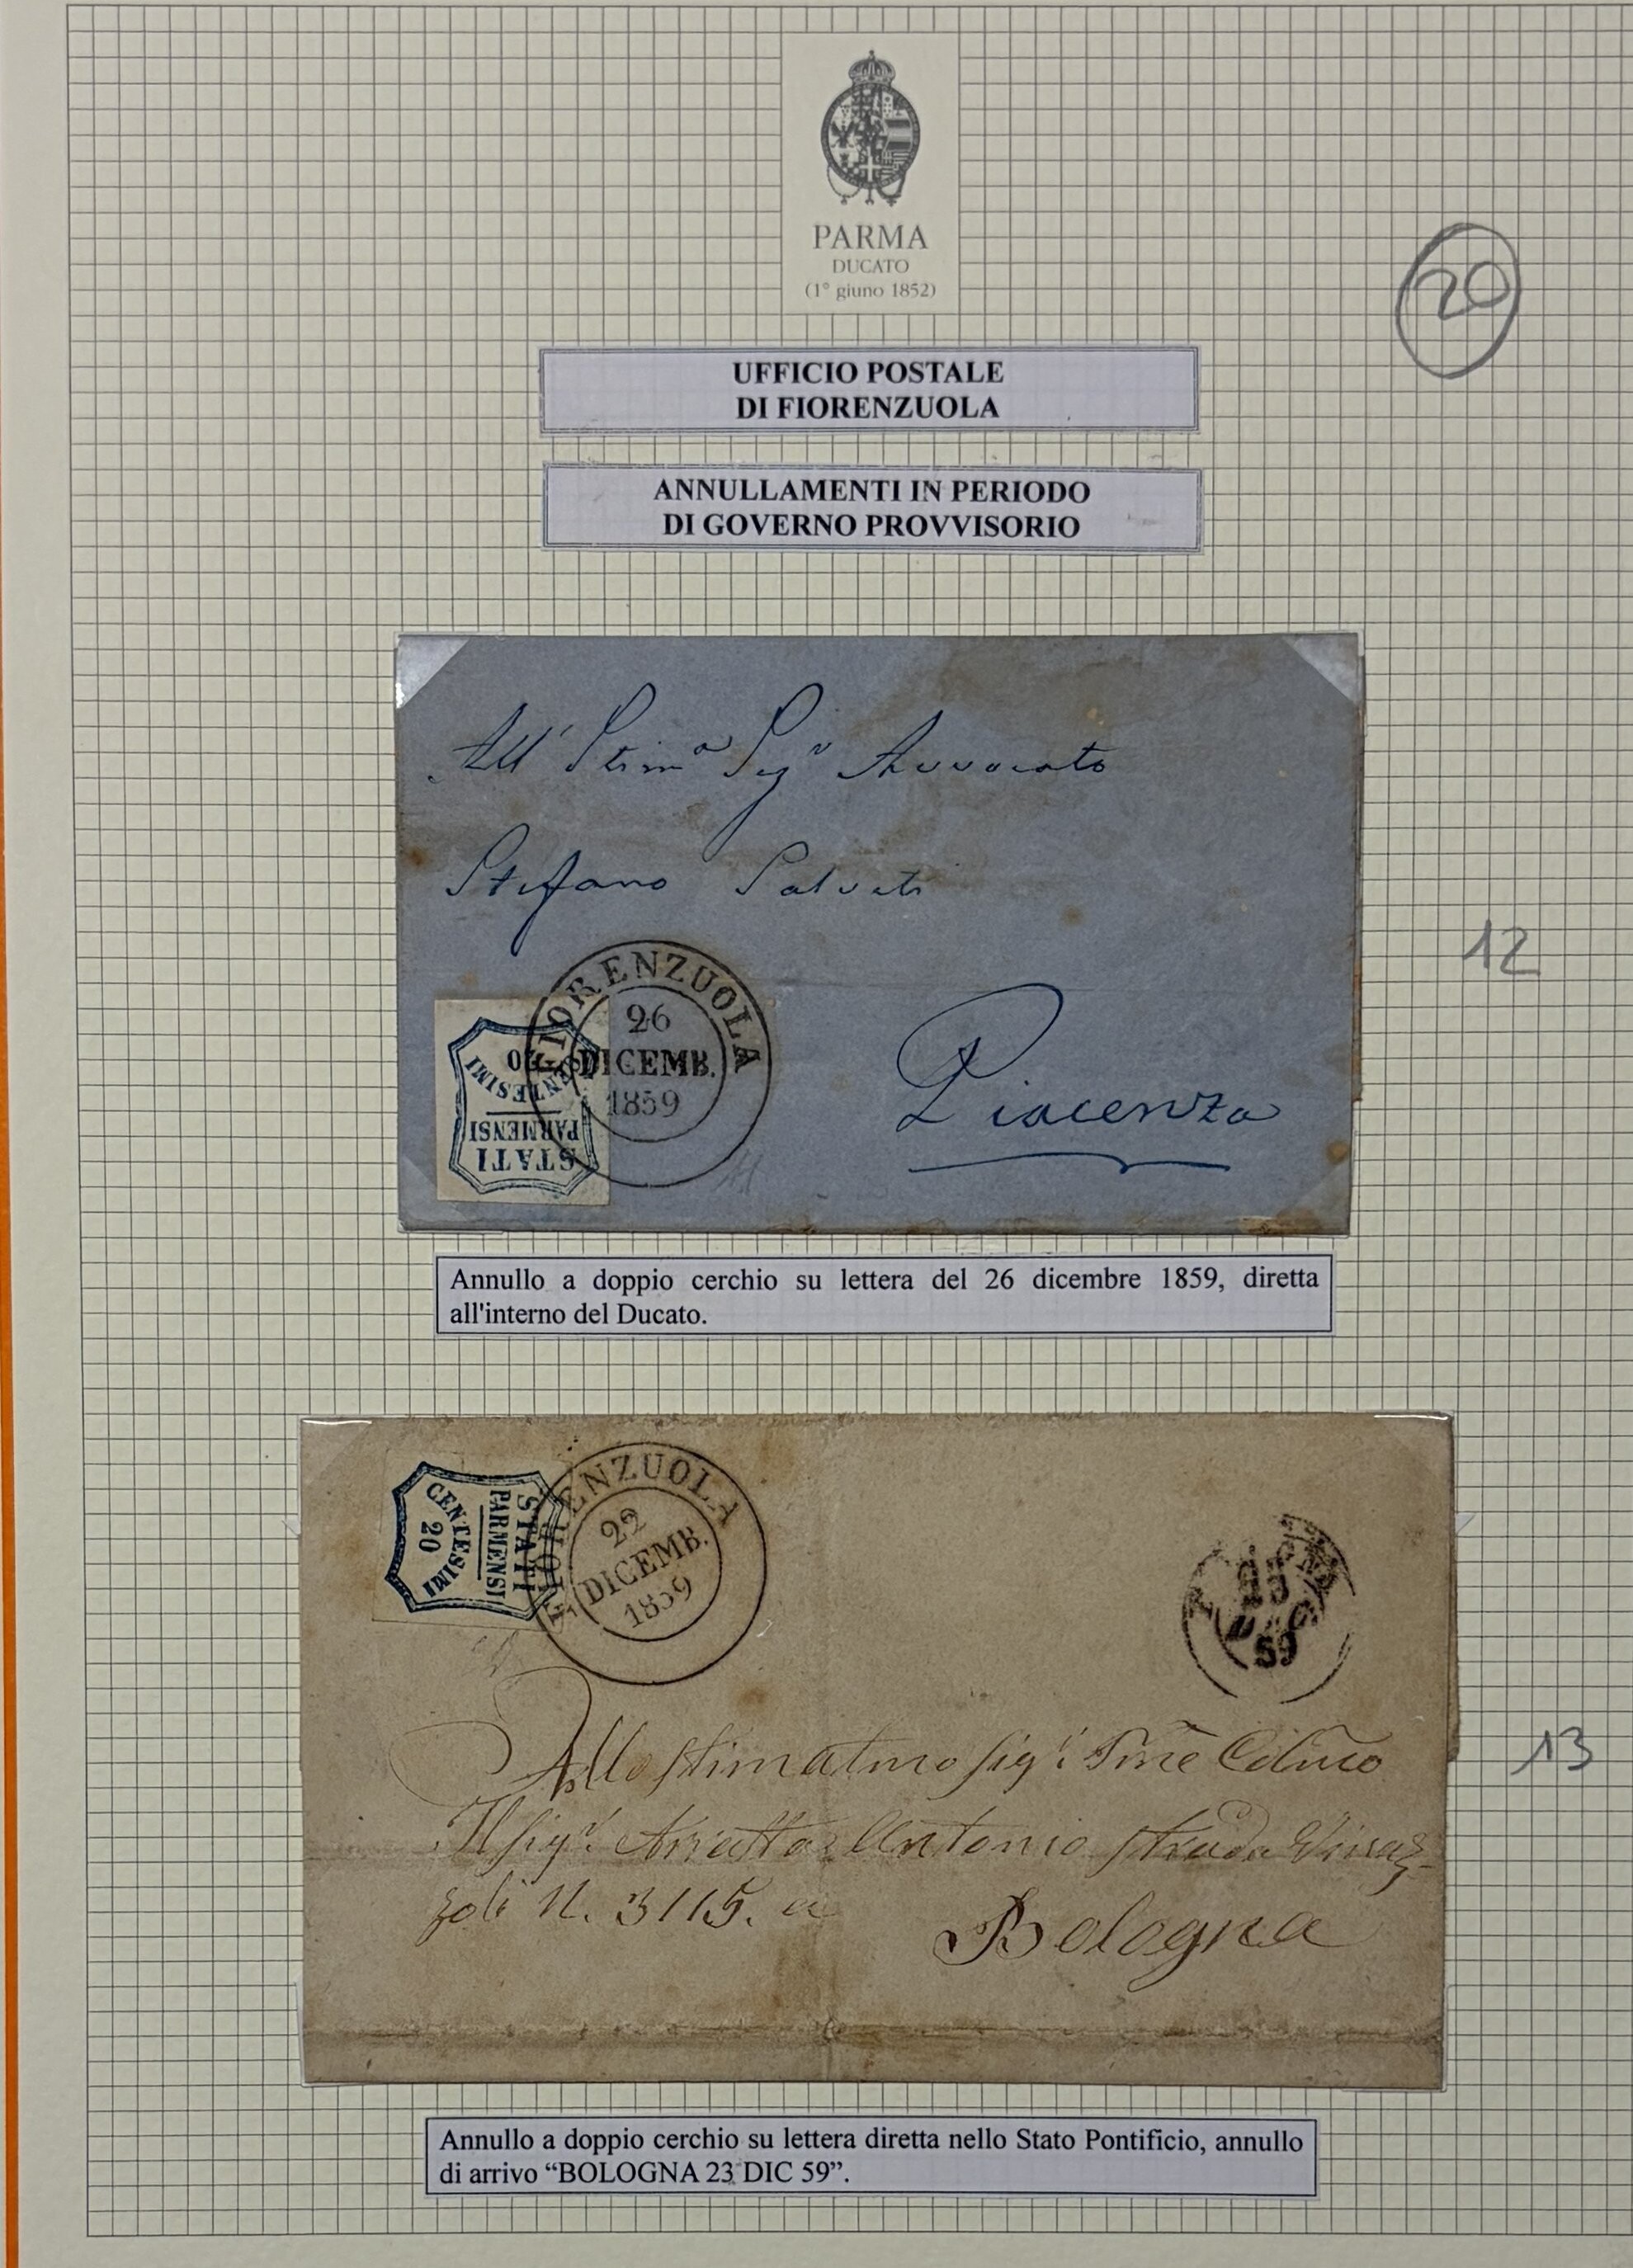 PARMA
DUCATO
(1° giuno 1852)
20
UFFICIO POSTALE
DI FIORENZUOLA
ANNULLAMENTI IN PERIODO
DI GOVERNO PROVVISORIO
All' Stimº Sigr Avvocato
Stefano Salvati
FIORENZUOLA
26
DICEMB.
1859
STATI
PARMENSI
CENTESIMI
20
Piacenza
12
Annullo a doppio cerchio su lettera del 26 dicembre 1859, diretta
all'interno del Ducato.
STATI
PARMENSI
CENTESIMI
20
FIORENZUOLA
22
DICEMB.
1859
DIC
59
Allo stimatmo sigr
Il sigr Antonio strada Vinaz-
zoli N. 3115. a
Bologna
13
Annullo a doppio cerchio su lettera diretta nello Stato Pontificio, annullo
di arrivo “BOLOGNA 23 DIC 59”.